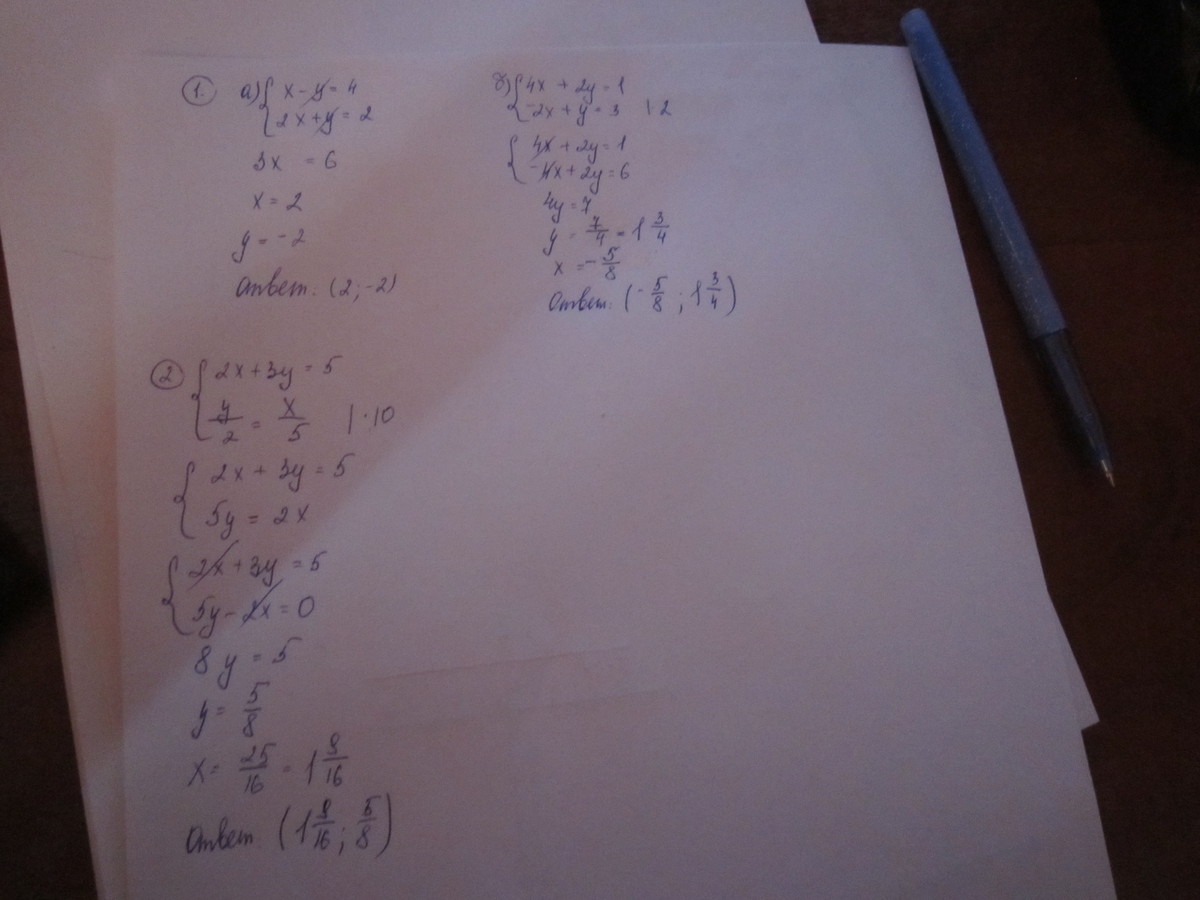 1. а) { x - y = 4
2x + y = 2
3x = 6
x = 2
y = -2
Ответ: (2; -2)
б) { 4x + 2y = 1
-2x + y = 3 | 2
{ 4x + 2y = 1
-4x + 2y = 6
4y = 7
y = 7/4 = 1 3/4
x = -5/8
Ответ: (-5/8 ; 1 3/4)
2 { 2x + 3y = 5
y/2 = x/5 | · 10
{ 2x + 3y = 5
5y = 2x
{ 2x + 3y = 5
5y - 2x = 0
8y = 5
y = 5/8
x = 25/16 = 1 9/16
Ответ: (1 9/16 ; 5/8)